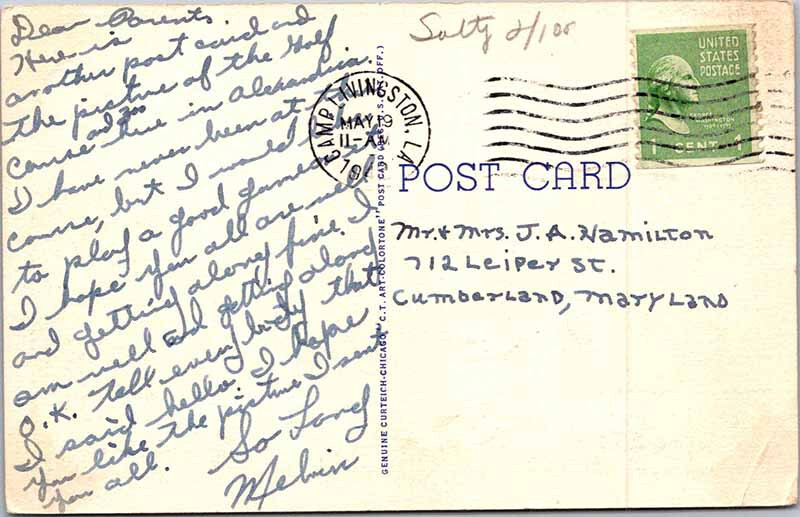 Dear Parents.
Here is
another post card and
the picture of the Golf
Course here in Alexandria.
and zoo
I have never been at the
course, but I would like
to play a good game.
I hope you all are well
and getting along fine. I
am well and getting along
O.K. Tell every body that
I said hello. I hope
you like the picture I sent
you all. So Long
Melvin
Salty 2/100
CAMP LIVINGSTON, LA.
MAY 19
11-AM
194
UNITED
STATES
POSTAGE
GEORGE
WASHINGTON
1 CENT 1
POST CARD
Mr. & Mrs. J. A. Hamilton
712 Leiper St.
Cumberland, Maryland
GENUINE CURTEICH-CHICAGO "C.T. ART-COLORTONE" POST CARD (REG. U.S. PAT. OFF.)